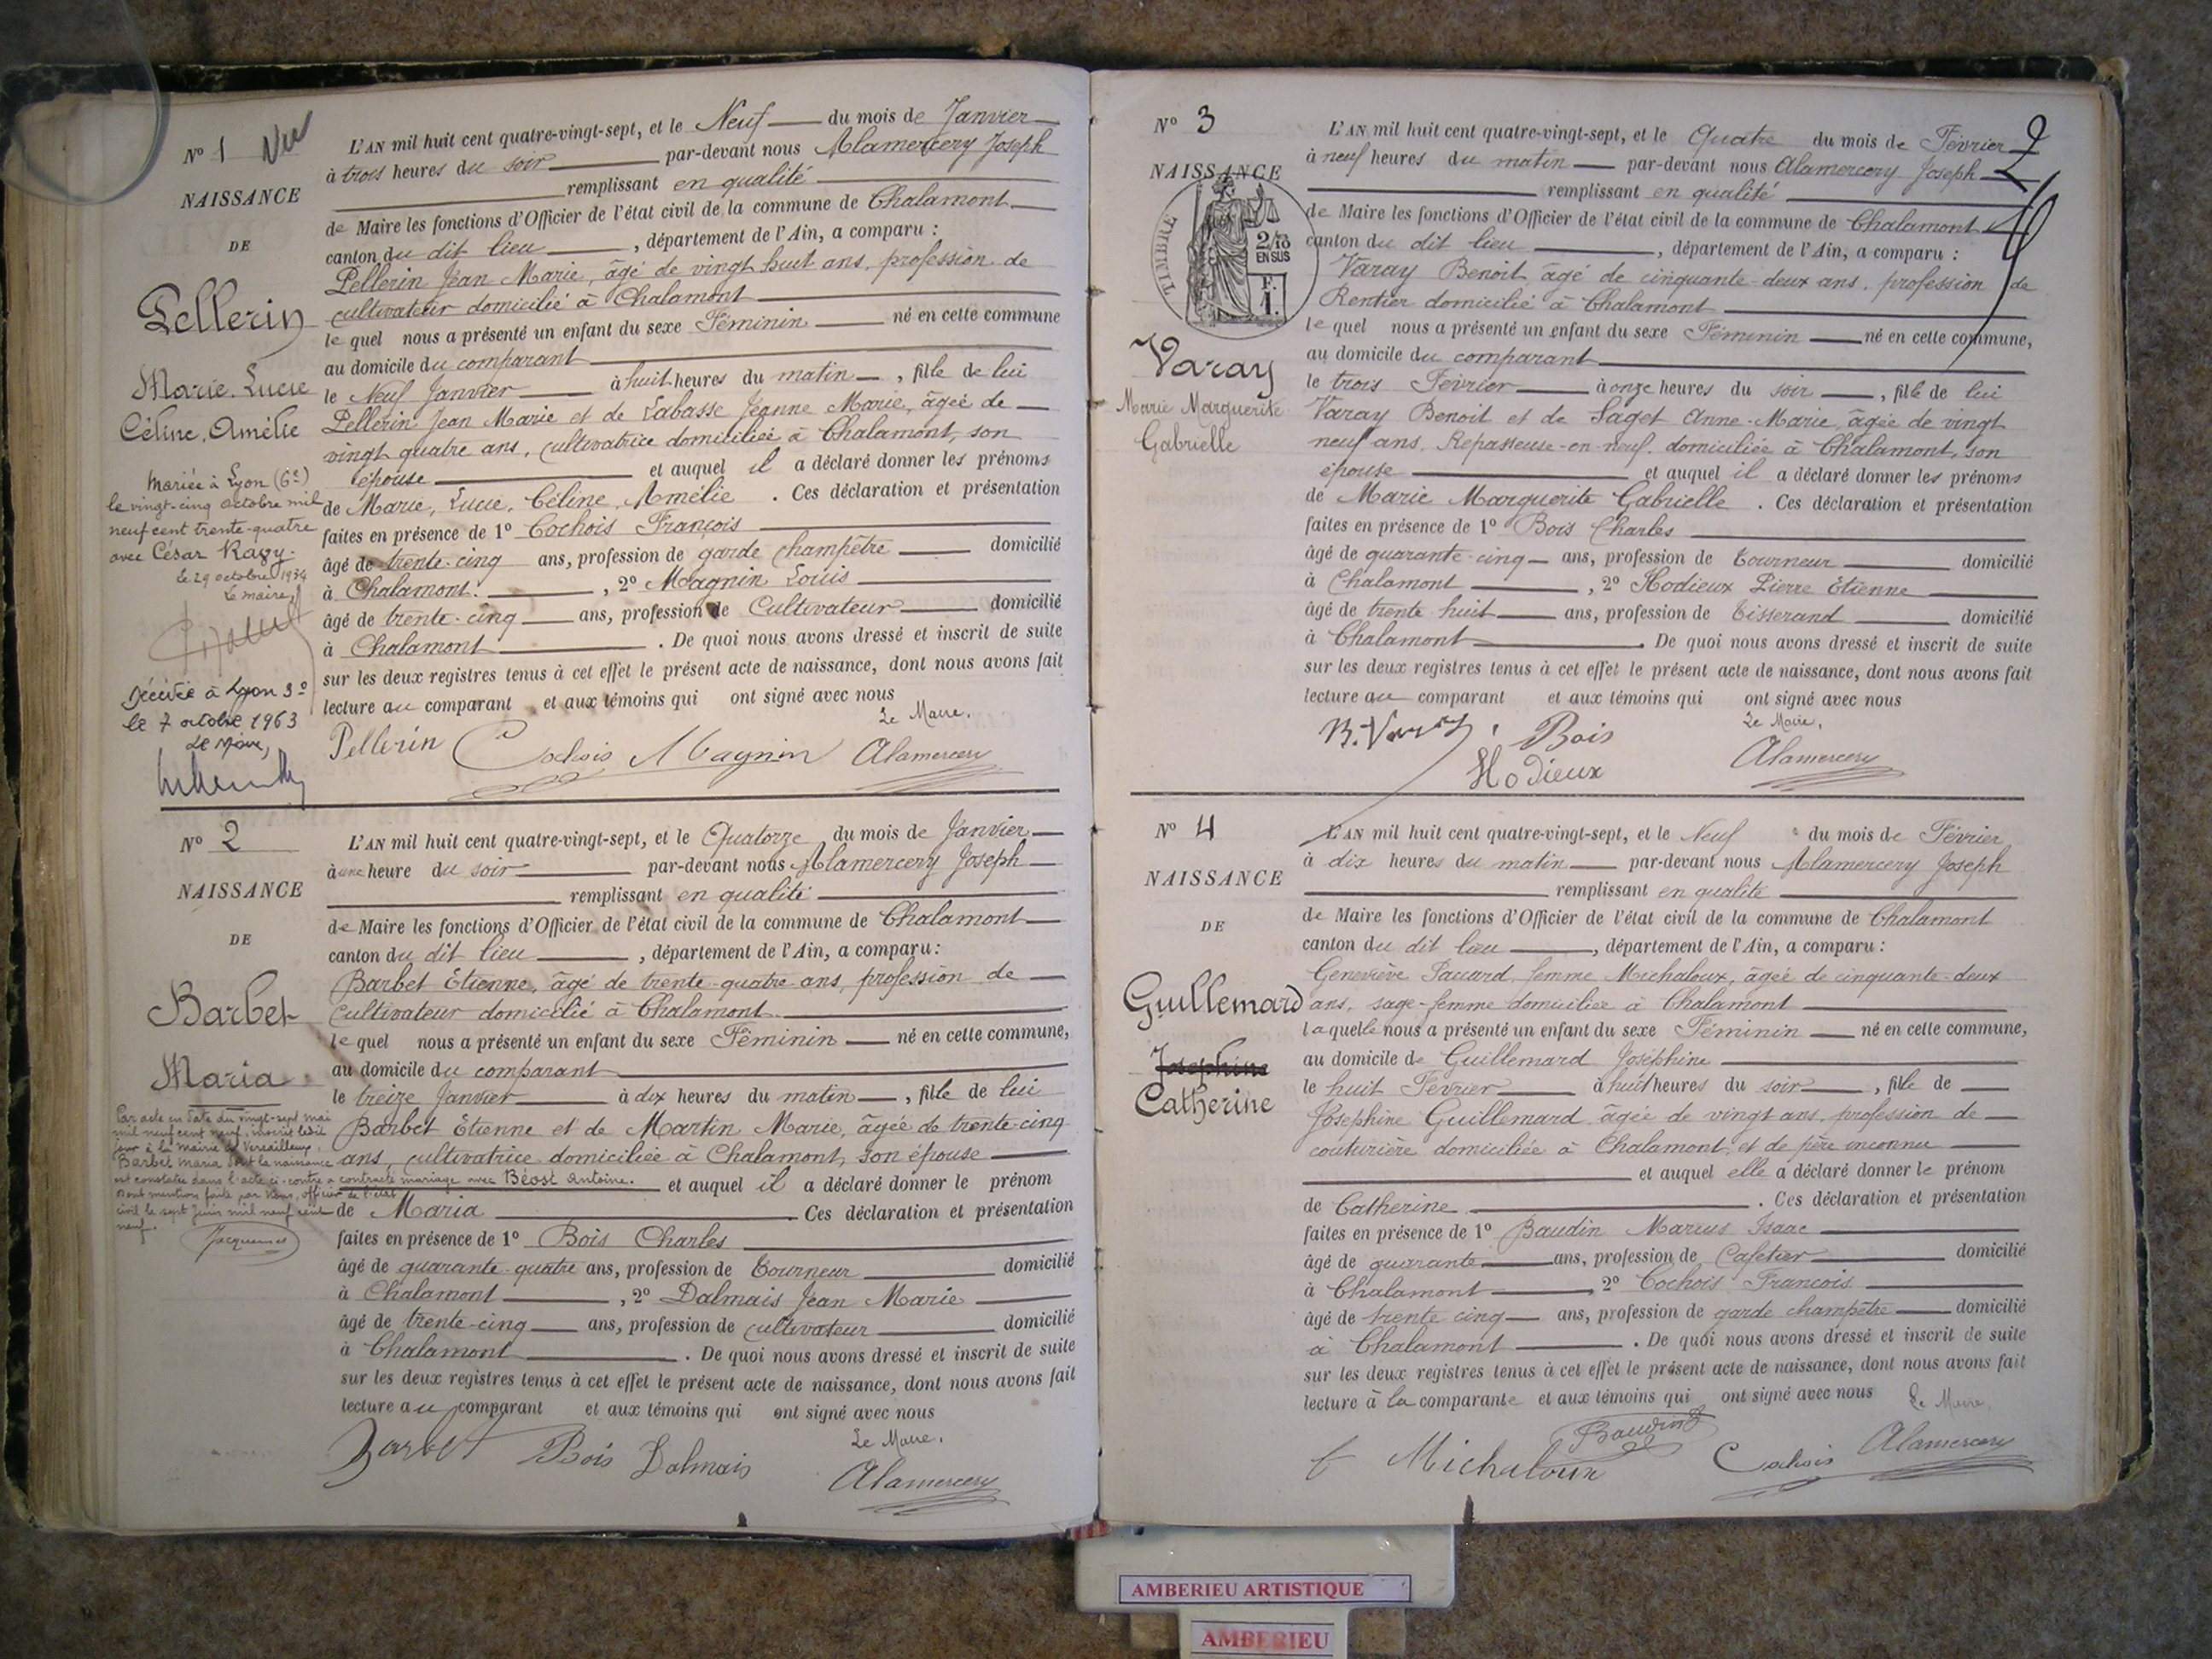 N° 1 Vu
NAISSANCE
DE
Pellerin
Marie. Lucie
Céline. Amélie
Mariée à Lyon (6e)
le vingt-cinq octobre mil
neuf cent trente-quatre
avec César Ragy.
Le 29 octobre 1934
Le maire,
Décédée à Lyon 3e
le 7 octobre 1963
Le Maire,
L'AN mil huit cent quatre-vingt-sept, et le Neuf du mois de Janvier
à trois heures du soir par-devant nous Alamercery Joseph
remplissant en qualité
de Maire les fonctions d'Officier de l'état civil de la commune de Chalamont
canton du dit lieu , département de l'Ain, a comparu :
Pellerin Jean Marie, âgé de vingt huit ans, profession de
cultivateur domicilié à Chalamont
le quel nous a présenté un enfant du sexe Féminin né en cette commune
au domicile du comparant
le Neuf Janvier à huit heures du matin , fille de lui
Pellerin Jean Marie et de Labasse Jeanne Marie, âgée de
vingt quatre ans, cultivatrice domiciliée à Chalamont, son
épouse et auquel il a déclaré donner les prénoms
de Marie, Lucie, Céline, Amélie . Ces déclaration et présentation
faites en présence de 1° Cochois François
âgé de trente-cinq ans, profession de garde champêtre domicilié
à Chalamont. , 2° Magnin Louis
âgé de trente-cinq ans, profession de Cultivateur domicilié
à Chalamont . De quoi nous avons dressé et inscrit de suite
sur les deux registres tenus à cet effet le présent acte de naissance, dont nous avons fait
lecture au comparant et aux témoins qui ont signé avec nous
Le Maire.
Pellerin Cochois Magnin Alamercery
N° 2
NAISSANCE
DE
Barbet
Maria
Par acte en date du vingt-sept mai
mil neuf cent neuf, inscrit ledit
jour à la mairie de Versailleux,
Barbet Maria dont la naissance
est constatée dans l'acte ci-contre a contracté mariage avec Béost Antoine.
Dont mention faite par Nous, officier de l'état
civil le sept Juin mil neuf cent
neuf.
Jacquemet
L'AN mil huit cent quatre-vingt-sept, et le Quatorze du mois de Janvier
à une heure du soir par-devant nous Alamercery Joseph
remplissant en qualité
de Maire les fonctions d'Officier de l'état civil de la commune de Chalamont
canton du dit lieu , département de l'Ain, a comparu :
Barbet Etienne, âgé de trente-quatre ans, profession de
cultivateur domicilié à Chalamont.
le quel nous a présenté un enfant du sexe Féminin né en cette commune,
au domicile du comparant
le treize Janvier à dix heures du matin , fille de lui
Barbet Etienne et de Martin Marie, âgée de trente-cinq
ans, cultivatrice domiciliée à Chalamont, son épouse
et auquel il a déclaré donner le prénom
de Maria Ces déclaration et présentation
faites en présence de 1° Bois Charles
âgé de quarante-quatre ans, profession de Tourneur domicilié
à Chalamont , 2° Dalmais Jean Marie
âgé de trente-cinq ans, profession de cultivateur domicilié
à Chalamont . De quoi nous avons dressé et inscrit de suite
sur les deux registres tenus à cet effet le présent acte de naissance, dont nous avons fait
lecture au comparant et aux témoins qui ont signé avec nous
Le Maire.
Barbet Bois Dalmais
Alamercery
2
N° 3
NAISSANCE
TIMBRE
2/10
EN SUS
F.
1.
Varay
Marie Marguerite
Gabrielle
L'AN mil huit cent quatre-vingt-sept, et le Quatre du mois de Février
à neuf heures du matin par-devant nous Alamercery Joseph
remplissant en qualité
de Maire les fonctions d'Officier de l'état civil de la commune de Chalamont
canton du dit lieu , département de l'Ain, a comparu :
Varay Benoit âgé de cinquante-deux ans, profession de
Rentier domicilié à Chalamont
le quel nous a présenté un enfant du sexe Féminin né en cette commune,
au domicile du comparant
le trois Février à onze heures du soir , fille de lui
Varay Benoit et de Saget Anne-Marie, âgée de vingt
neuf ans. Repasseuse-en-neuf, domiciliée à Chalamont, son
épouse et auquel il a déclaré donner les prénoms
de Marie Marguerite Gabrielle . Ces déclaration et présentation
faites en présence de 1° Bois Charles
âgé de quarante-cinq ans, profession de Tourneur domicilié
à Chalamont , 2° Hodieux Pierre Etienne
âgé de trente huit ans, profession de Tisserand domicilié
à Chalamont . De quoi nous avons dressé et inscrit de suite
sur les deux registres tenus à cet effet le présent acte de naissance, dont nous avons fait
lecture au comparant et aux témoins qui ont signé avec nous
Le Maire.
B. Varay Bois
Hodieux Alamercery
N° 4
NAISSANCE
DE
Guillemard
Josephine
Catherine
L'AN mil huit cent quatre-vingt-sept, et le Neuf du mois de Février
à dix heures du matin par-devant nous Alamercery Joseph
remplissant en qualité
de Maire les fonctions d'Officier de l'état civil de la commune de Chalamont
canton du dit lieu , département de l'Ain, a comparu :
Geneviève Pauard, femme Michaloux, âgée de cinquante-deux
ans, sage-femme domiciliée à Chalamont
la quelle nous a présenté un enfant du sexe Féminin né en cette commune,
au domicile de Guillemard Joséphine
le huit Février à huit heures du soir , fille de
Joséphine Guillemard âgée de vingt ans, profession de
couturière domiciliée à Chalamont, et de père inconnu
et auquel elle a déclaré donner le prénom
de Catherine . Ces déclaration et présentation
faites en présence de 1° Baudin Marius Isaac
âgé de quarante ans, profession de Cafetier domicilié
à Chalamont , 2° Cochois François
âgé de trente cinq ans, profession de garde champêtre domicilié
à Chalamont . De quoi nous avons dressé et inscrit de suite
sur les deux registres tenus à cet effet le présent acte de naissance, dont nous avons fait
lecture à la comparante et aux témoins qui ont signé avec nous
Le Maire.
Baudin
f Michaloux Cochois Alamercery
AMBERIEU ARTISTIQUE
AMBERIEU